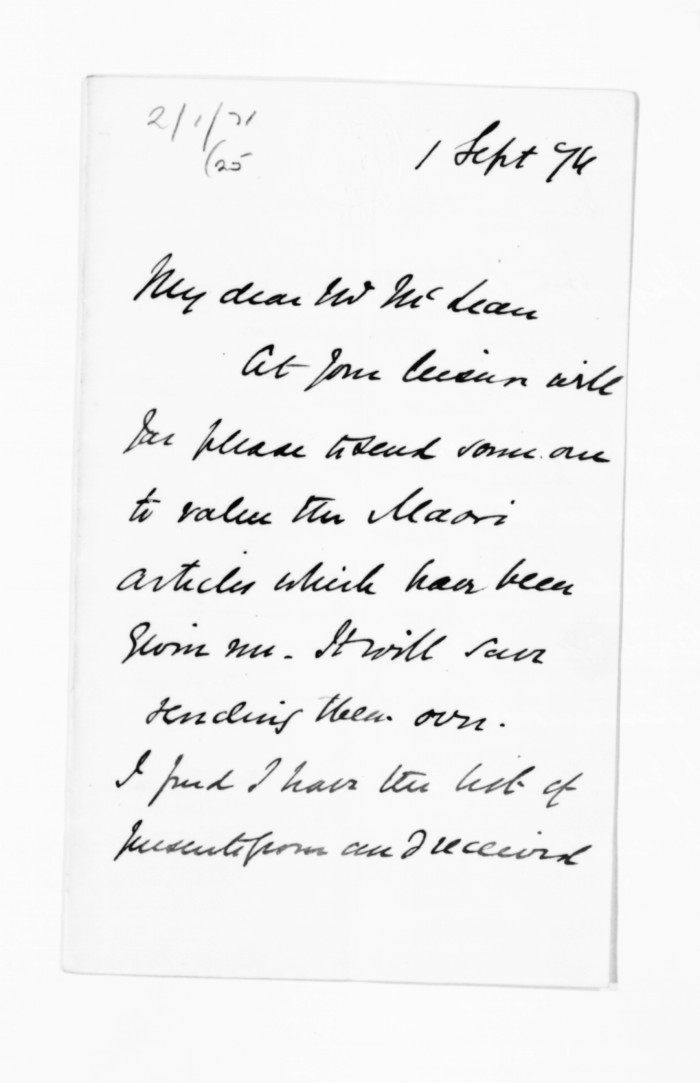 2/1/71
(25
1 Sept 74
My dear Mr McLean
At your leisure will
you please to send some one
to value the Maori
articles which have been
given me. It will save
sending them over.
I find I have the list of
presents given and received